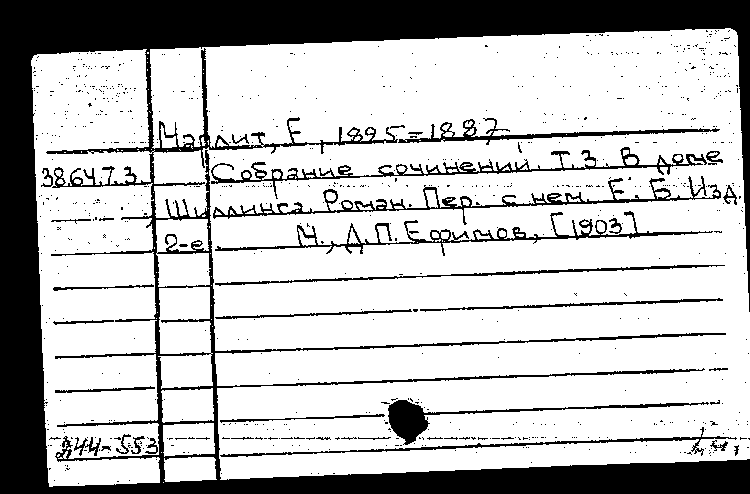 Марлит, Е., 1895=1887
38.64.7.3. Собрание сочинений. Т.3. В доме
Шиллинга. Роман. Пер. с нем. Е. Б. Изд.
2-е. М., Д.П. Ефимов, [1903].
244-553